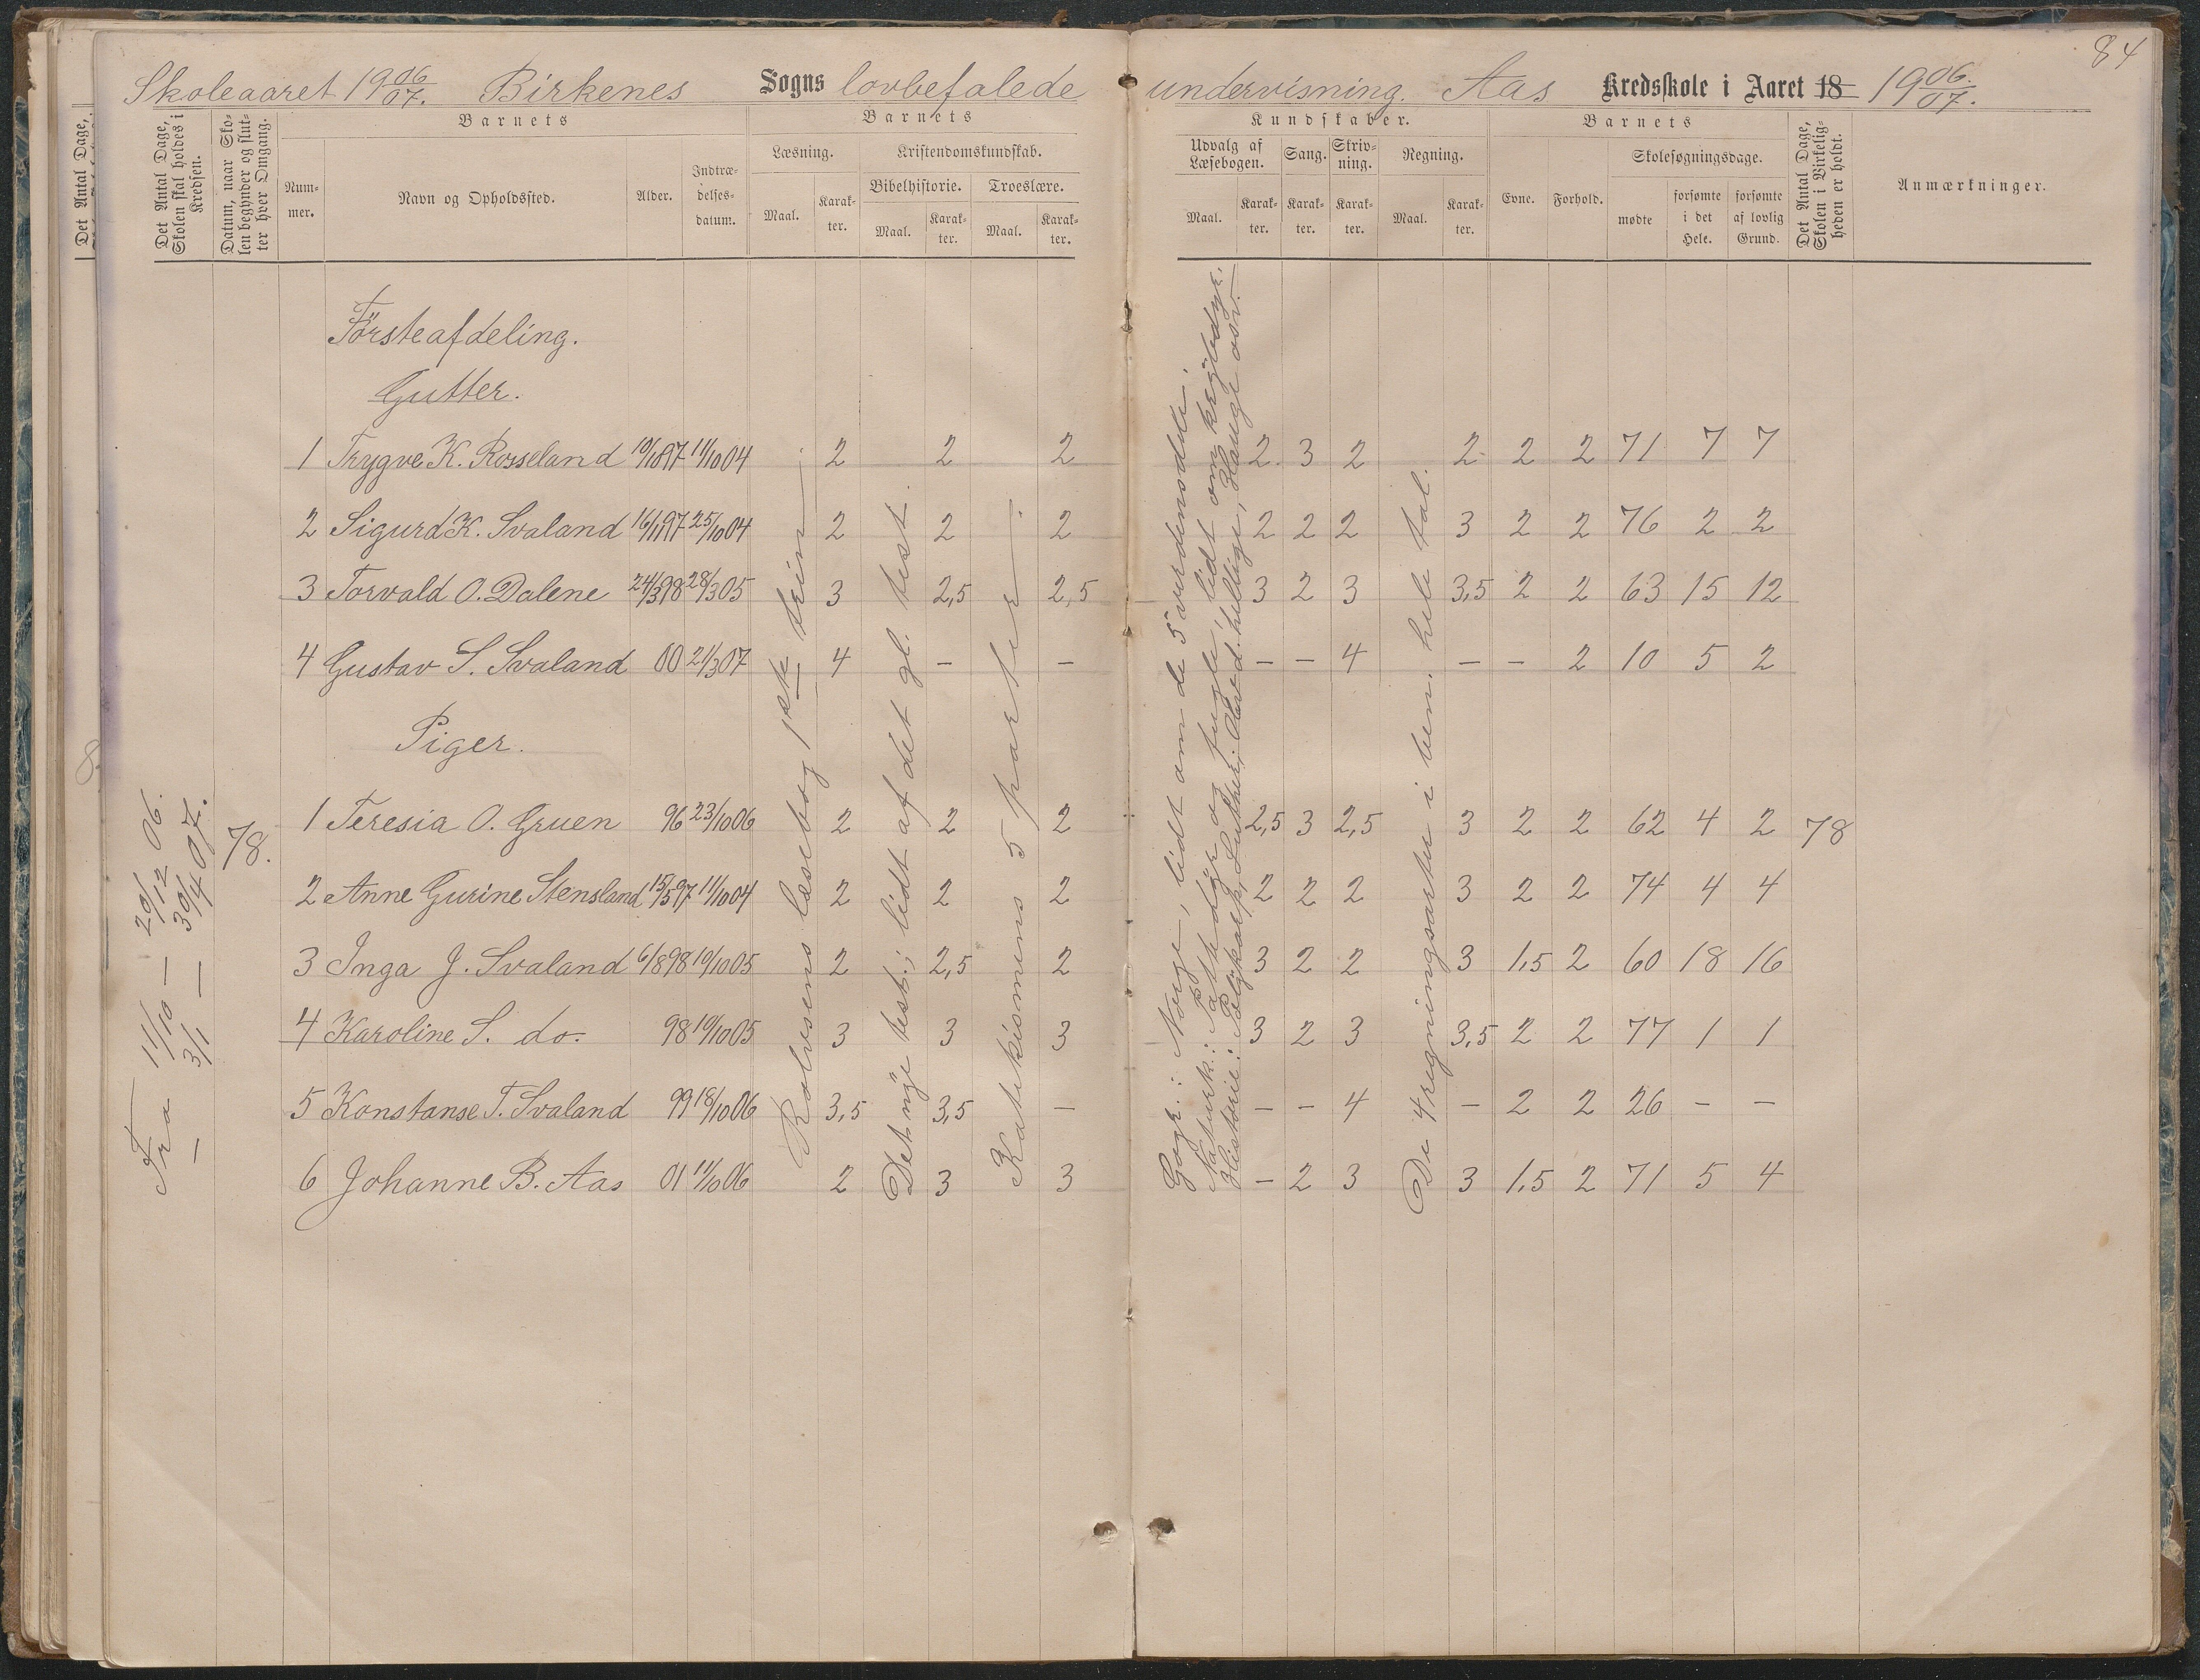 84
Skoleaaret 19 06/07. Birkenes Sogns lovbefalede undervisning. Aas Kredsskole i Aaret 18 19 06/07.
Det Antal Dage,
Det Antal Dage, Skolen skal holdes i Kredsen.
Datum, naar Skolen begynder og slutter hver Omgang.
Barnets
Nummer.
Navn og Opholdssted.
Alder.
Indtrædelsesdatum.
Barnets
Læsning.
Maal. Karakter.
Kristendomskundskab.
Bibelhistorie. Troeslære.
Maal. Karakter. Maal. Karakter.
Kundskaber.
Udvalg af Læsebogen. Sang. Skrivning. Regning.
Maal. Karakter. Karakter. Karakter. Maal. Karakter.
Barnets
Evne. Forhold.
Skolesøgningsdage.
mødte forsømte i det Hele. forsømte af lovlig Grund.
Det Antal Dage, Skolen i Virkeligheden er holdt.
Anmærkninger.
Försteafdeling.
Gutter.
1 Trygve K. Rosseland 10/1897 11/10 04 2 2 2 2 3 2 2 2 2 71 7 7
2 Sigurd K. Svaland 16/1197 25/10 04 2 2 2 2 2 2 3 2 2 76 2 2
3 Torvald O. Dalene 24/398 28/3 05 3 2,5 2,5 3 2 3 3,5 2 2 63 15 12
4 Gustav S. Svaland 00 21/3 07 4 – – – – 4 – – 2 10 5 2
Piger.
1 Teresia O. Gruen 96 23/10 06 2 2 2 2,5 3 2,5 3 2 2 62 4 2 78
2 Anne Gurine Stensland 15/597 11/10 04 2 2 2 2 2 2 3 2 2 74 4 4
3 Inga J. Svaland 6/898 19/10 05 2 2,5 2 3 2 2 3 1,5 2 60 18 16
4 Karoline S. do. 98 19/10 05 3 3 3 3 2 3 3,5 2 2 77 1 1
5 Konstanse T. Svaland 99 18/10 06 3,5 3,5 – – – 4 – 2 2 26 – –
6 Johanne B. Aas 01 11/10 06 2 3 3 – 2 3 3 1,5 2 71 5 4
Fra 11/10 — 20/12 06.
— 3/1 — 30/4 07.
78.
Rolvsens læsebog 1ste trin
Det nye test.; lidt af det gl. test.
Katekismens 5 parter
Geogr.: Norge, lidt om de 5 verdensdele.
Naturk.: Pattedyr og fugle, lidt om krybdyr.
Historie: Polykarp, Luther, Olav d. hellige, Hauge osv.
De 4 regningsarter i ben. hele tal.